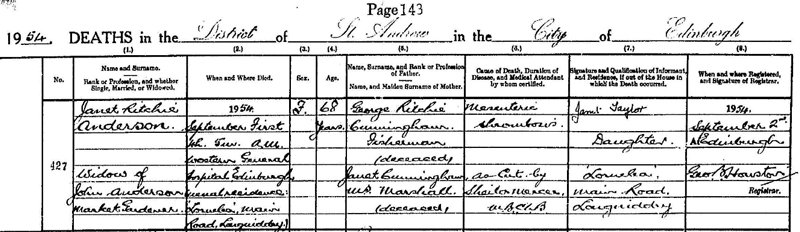 Page 143
1954. DEATHS in the District of St. Andrew in the City of Edinburgh
(1.) (2.) (3.) (4.) (5.) (6.) (7.) (8.)
No.
Name and Surname.
Rank or Profession, and whether
Single, Married, or Widowed.
When and Where Died.
Sex.
Age.
Name, Surname, and Rank or Profession
of Father.
Name, and Maiden Surname of Mother.
Cause of Death, Duration of
Disease, and Medical Attendant
by whom certified.
Signature and Qualification of Informant,
and Residence, if out of the House in
which the Death occurred.
When and where Registered,
and Signature of Registrar.
427
Janet Ritchie
Anderson.
Widow of
John Anderson
Market Gardener
1954.
September First
1h. 7m. A.M.
Western General
Hospital Edinburgh
(usual residence:
Lornelea, Main
Road, Longniddry)
F.
68
Years.
George Ritchie
Cunningham
Fisherman
(deceased)
Janet Cunningham
m.s. Marshall.
(deceased)
Mesenteric
thrombosis
as Cert. by
Sheila Mercer,
M.B.Ch.B
Janet Taylor
Daughter
'Lornelea'
Main Road,
Longniddry
1954.
September 2nd
At Edinburgh
Geo. Houston
Registrar.